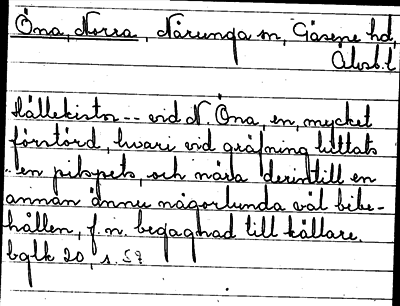 Öna, Norra, Nårunga sn, Gäsene hd,
Älvsb. l.
Hällekistor -- vid N. Öna, en, mycket
förstörd, hvari vid gräfning hittats
.. en pilspets, och nära derintill en
annan ännu någorlunda väl bibe-
hållen, f.n. begagnad till källare.
bglk 20, s. 59